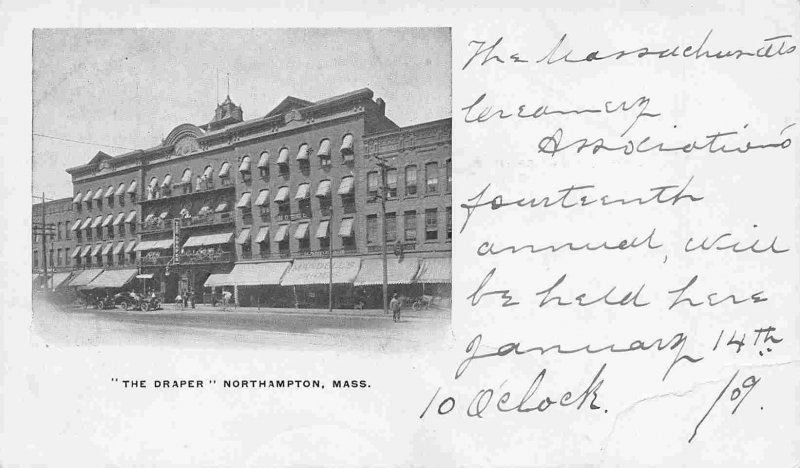 The Massachusetts
Creamery
Association's
fourteenth
annual, will
be held here
January 14th
10 O'clock. /09.
"THE DRAPER" NORTHAMPTON, MASS.